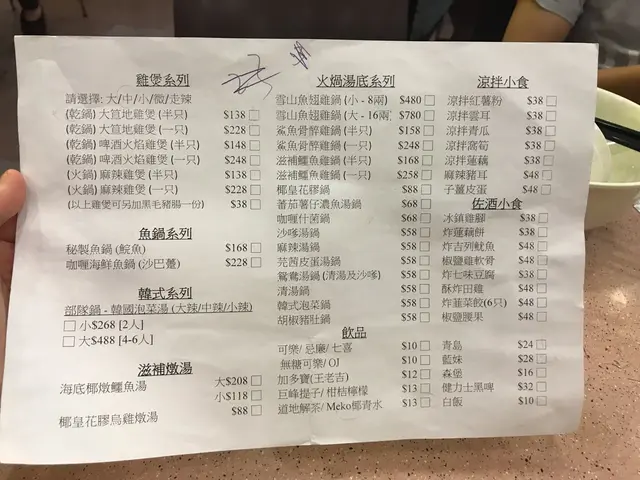 雞煲系列
請選擇: 大/中/小/微/走辣
(乾鍋) 大笪地雞煲 (半只) $138
(乾鍋) 大笪地雞煲 (一只) $228
(乾鍋) 啤酒火焰雞煲 (半只) $148
(乾鍋) 啤酒火焰雞煲 (一只) $248
(火鍋) 麻辣雞煲 (半只) $138
(火鍋) 麻辣雞煲 (一只) $228
(以上雞煲可另加黑毛豬腸一份) $38
魚鍋系列
秘製魚鍋 (鯇魚) $168
咖喱海鮮魚鍋 (沙巴躉) $228
韓式系列
部隊鍋 - 韓國泡菜湯 (大辣/中辣/小辣)
小$268 [2人]
大$488 [4-6人]
滋補燉湯
海底椰燉鱷魚湯 大$208
小$118
椰皇花膠烏雞燉湯 $88
火煱湯底系列
雪山魚翅雞鍋 (小 - 8兩) $480
雪山魚翅雞鍋 (大 - 16兩) $780
鯊魚骨醉雞鍋 (半只) $158
鯊魚骨醉雞鍋 (一只) $248
滋補鱷魚雞鍋 (半只) $168
滋補鱷魚雞鍋 (一只) $258
椰皇花膠鍋 $88
番茄薯仔濃魚湯鍋 $68
咖喱什菌鍋 $68
沙嗲湯鍋 $58
麻辣湯鍋 $58
芫茜皮蛋湯鍋 $58
鴛鴦湯鍋 (清湯及沙嗲) $58
清湯鍋 $58
韓式泡菜鍋 $58
胡椒豬肚鍋 $58
飲品
可樂/ 忌廉/ 七喜 $10
無糖可樂/ OJ $10
加多寶(王老吉) $12
巨峰提子/ 柑桔檸檬 $13
道地解茶/ Meko椰青水 $13
涼拌小食
涼拌紅薯粉 $38
涼拌雲耳 $38
涼拌青瓜 $38
涼拌窩筍 $38
涼拌蓮藕 $38
麻辣豬耳 $48
子薑皮蛋 $48
佐酒小食
冰鎮雞腳 $38
炸蓮藕餅 $38
炸吉列魷魚 $48
椒鹽雞軟骨 $48
炸七味豆腐 $38
酥炸田雞 $48
炸韮菜餃(6只) $48
椒鹽腰果 $48
青島 $24
藍妹 $28
森堡 $16
健力士黑啤 $32
白飯 $10